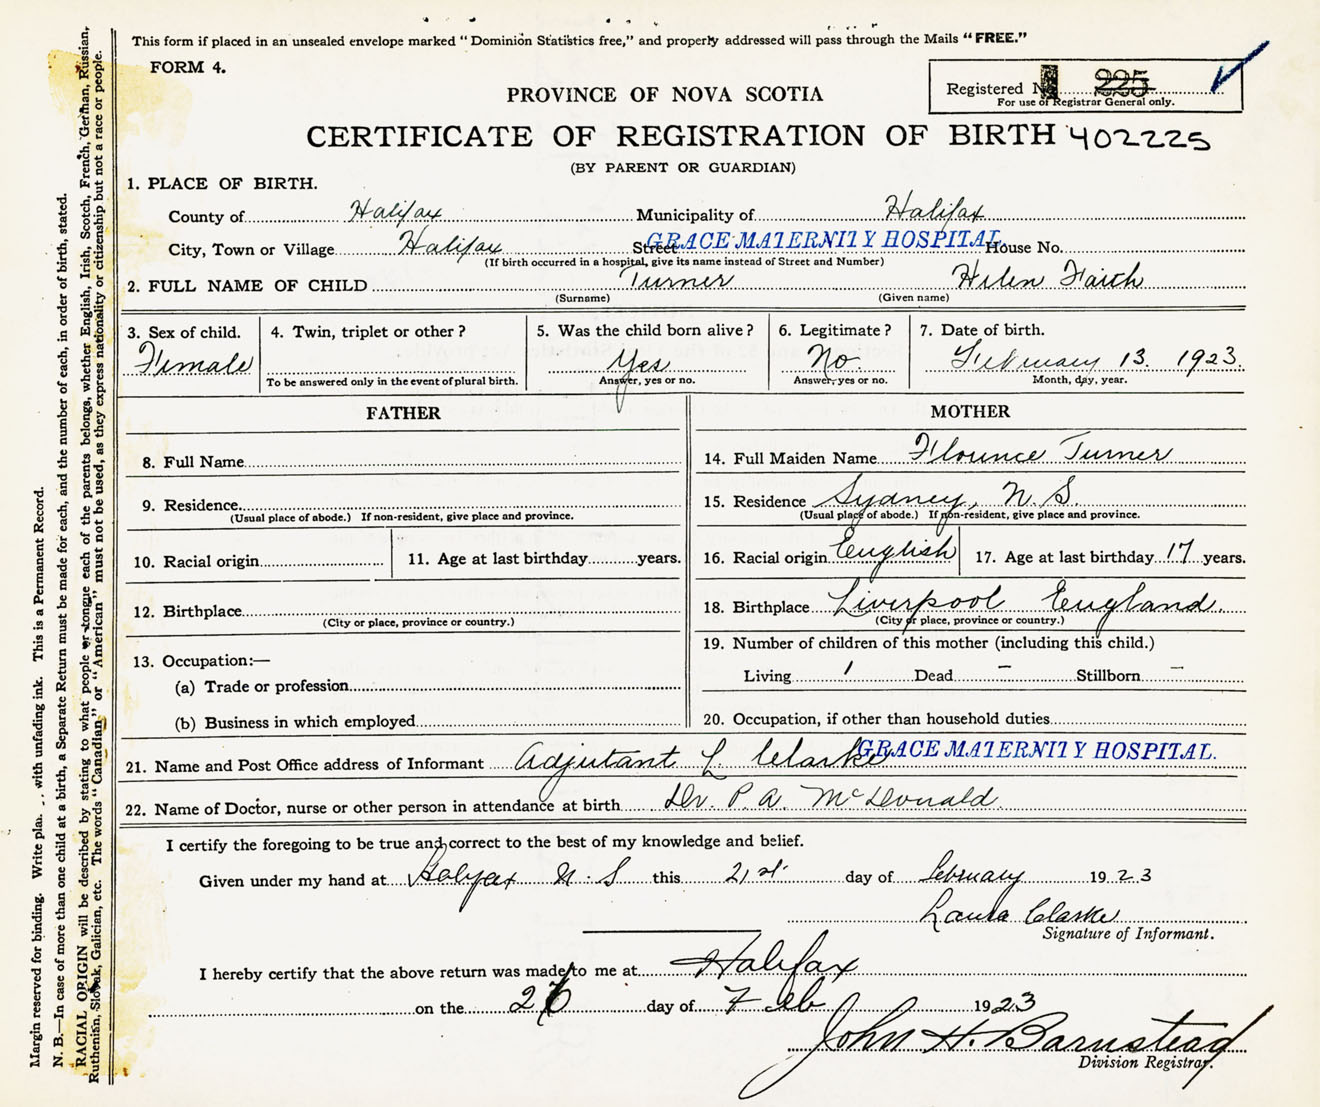 This form if placed in an unsealed envelope marked "Dominion Statistics free," and properly addressed will pass through the Mails "FREE."
FORM 4.
Registered No. 225
For use of Registrar General only.
PROVINCE OF NOVA SCOTIA
CERTIFICATE OF REGISTRATION OF BIRTH 402225
(BY PARENT OR GUARDIAN)
1. PLACE OF BIRTH.
County of Halifax Municipality of Halifax
City, Town or Village Halifax Street GRACE MATERNITY HOSPITAL House No.
(If birth occurred in a hospital, give its name instead of Street and Number)
2. FULL NAME OF CHILD Turner Helen Faith
(Surname) (Given name)
3. Sex of child. 4. Twin, triplet or other? 5. Was the child born alive? 6. Legitimate? 7. Date of birth.
Female Yes No. February 13. 1923.
To be answered only in the event of plural birth. Answer, yes or no. Answer, yes or no. Month, day, year.
FATHER
8. Full Name
9. Residence
(Usual place of abode.) If non-resident, give place and province.
10. Racial origin 11. Age at last birthday years.
12. Birthplace
(City or place, province or country.)
13. Occupation:—
(a) Trade or profession
(b) Business in which employed
MOTHER
14. Full Maiden Name Florence Turner
15. Residence Sydney, N. S.
(Usual place of abode.) If non-resident, give place and province.
16. Racial origin English 17. Age at last birthday 17 years.
18. Birthplace Liverpool England.
(City or place, province or country.)
19. Number of children of this mother (including this child.)
Living 1 Dead – Stillborn –
20. Occupation, if other than household duties
21. Name and Post Office address of Informant Adjutant L. Clarke GRACE MATERNITY HOSPITAL.
22. Name of Doctor, nurse or other person in attendance at birth Dr. P. A. McDonald.
I certify the foregoing to be true and correct to the best of my knowledge and belief.
Given under my hand at Halifax N. S this 21st. day of February 1923
Laura Clarke
Signature of Informant.
I hereby certify that the above return was made to me at Halifax
on the 26 day of Feb 1923
John H. Barnstead
Division Registrar.
Margin reserved for binding. Write with unfading ink. This is a Permanent Record.
N. B.—In case of more than one child at a birth, a Separate Return must be made for each, and the number of each, in order of birth, stated.
RACIAL ORIGIN will be described by stating to what people or tongue each of the parents belongs, whether English, Irish, Scotch, French, German, Russian,
Ruthenian, Slovak, Galician, etc. The words "Canadian," or "American" must not be used, as they express nationality or citizenship but not a race or people.